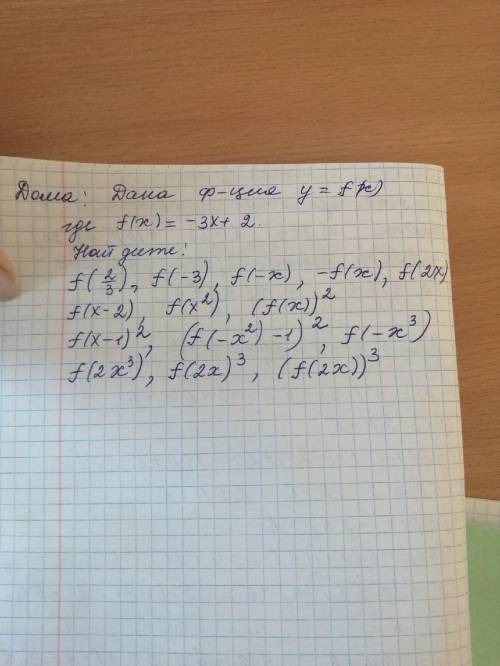 Дома: Дана ф-ция y = f(x)
где f(x) = -3x + 2.
Найдите:
f(2/3), f(-3), f(-x), -f(x), f(2x)
f(x-2), f(x²), (f(x))²
f(x-1)², (f(-x²)-1)², f(-x³)
f(2x³), f(2x)³, (f(2x))³